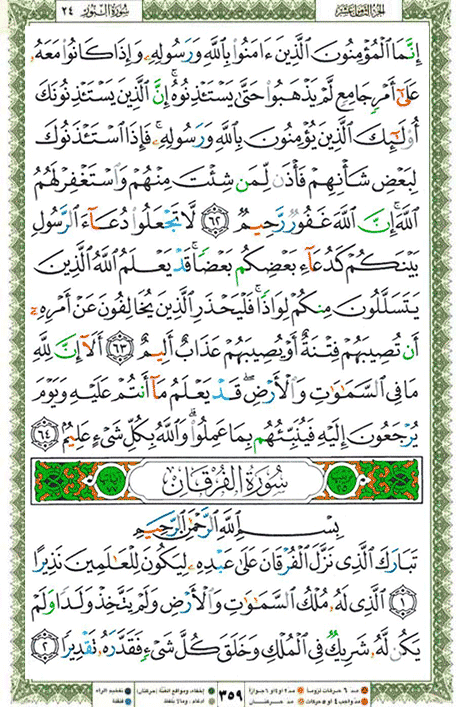 الجزء الثامن عشر سورة النور ٢٤
إِنَّمَا ٱلْمُؤْمِنُونَ ٱلَّذِينَ ءَامَنُوا۟ بِٱللَّهِ وَرَسُولِهِۦ وَإِذَا كَانُوا۟ مَعَهُۥ
عَلَىٰٓ أَمْرٍ جَامِعٍ لَّمْ يَذْهَبُوا۟ حَتَّىٰ يَسْتَـْٔذِنُوهُ ۚ إِنَّ ٱلَّذِينَ يَسْتَـْٔذِنُونَكَ
أُو۟لَـٰٓئِكَ ٱلَّذِينَ يُؤْمِنُونَ بِٱللَّهِ وَرَسُولِهِۦ ۚ فَإِذَا ٱسْتَـْٔذَنُوكَ
لِبَعْضِ شَأْنِهِمْ فَأْذَن لِّمَن شِئْتَ مِنْهُمْ وَٱسْتَغْفِرْ لَهُمُ
ٱللَّهَ ۚ إِنَّ ٱللَّهَ غَفُورٌ رَّحِيمٌ ٦٢ لَّا تَجْعَلُوا۟ دُعَآءَ ٱلرَّسُولِ
بَيْنَكُمْ كَدُعَآءِ بَعْضِكُم بَعْضًا ۚ قَدْ يَعْلَمُ ٱللَّهُ ٱلَّذِينَ
يَتَسَلَّلُونَ مِنكُمْ لِوَاذًا ۚ فَلْيَحْذَرِ ٱلَّذِينَ يُخَالِفُونَ عَنْ أَمْرِهِۦٓ
أَن تُصِيبَهُمْ فِتْنَةٌ أَوْ يُصِيبَهُمْ عَذَابٌ أَلِيمٌ ٦٣ أَلَآ إِنَّ لِلَّهِ
مَا فِى ٱلسَّمَـٰوَٰتِ وَٱلْأَرْضِ ۖ قَدْ يَعْلَمُ مَآ أَنتُمْ عَلَيْهِ وَيَوْمَ
يُرْجَعُونَ إِلَيْهِ فَيُنَبِّئُهُم بِمَا عَمِلُوا۟ ۗ وَٱللَّهُ بِكُلِّ شَىْءٍ عَلِيمٌ ٦٤
سُورَةُ الفُرْقَانِ
بِسْمِ ٱللَّهِ ٱلرَّحْمَـٰنِ ٱلرَّحِيمِ
تَبَارَكَ ٱلَّذِى نَزَّلَ ٱلْفُرْقَانَ عَلَىٰ عَبْدِهِۦ لِيَكُونَ لِلْعَـٰلَمِينَ نَذِيرًا
١ ٱلَّذِى لَهُۥ مُلْكُ ٱلسَّمَـٰوَٰتِ وَٱلْأَرْضِ وَلَمْ يَتَّخِذْ وَلَدًا وَلَمْ
يَكُن لَّهُۥ شَرِيكٌ فِى ٱلْمُلْكِ وَخَلَقَ كُلَّ شَىْءٍ فَقَدَّرَهُۥ تَقْدِيرًا ٢
٣٥٩